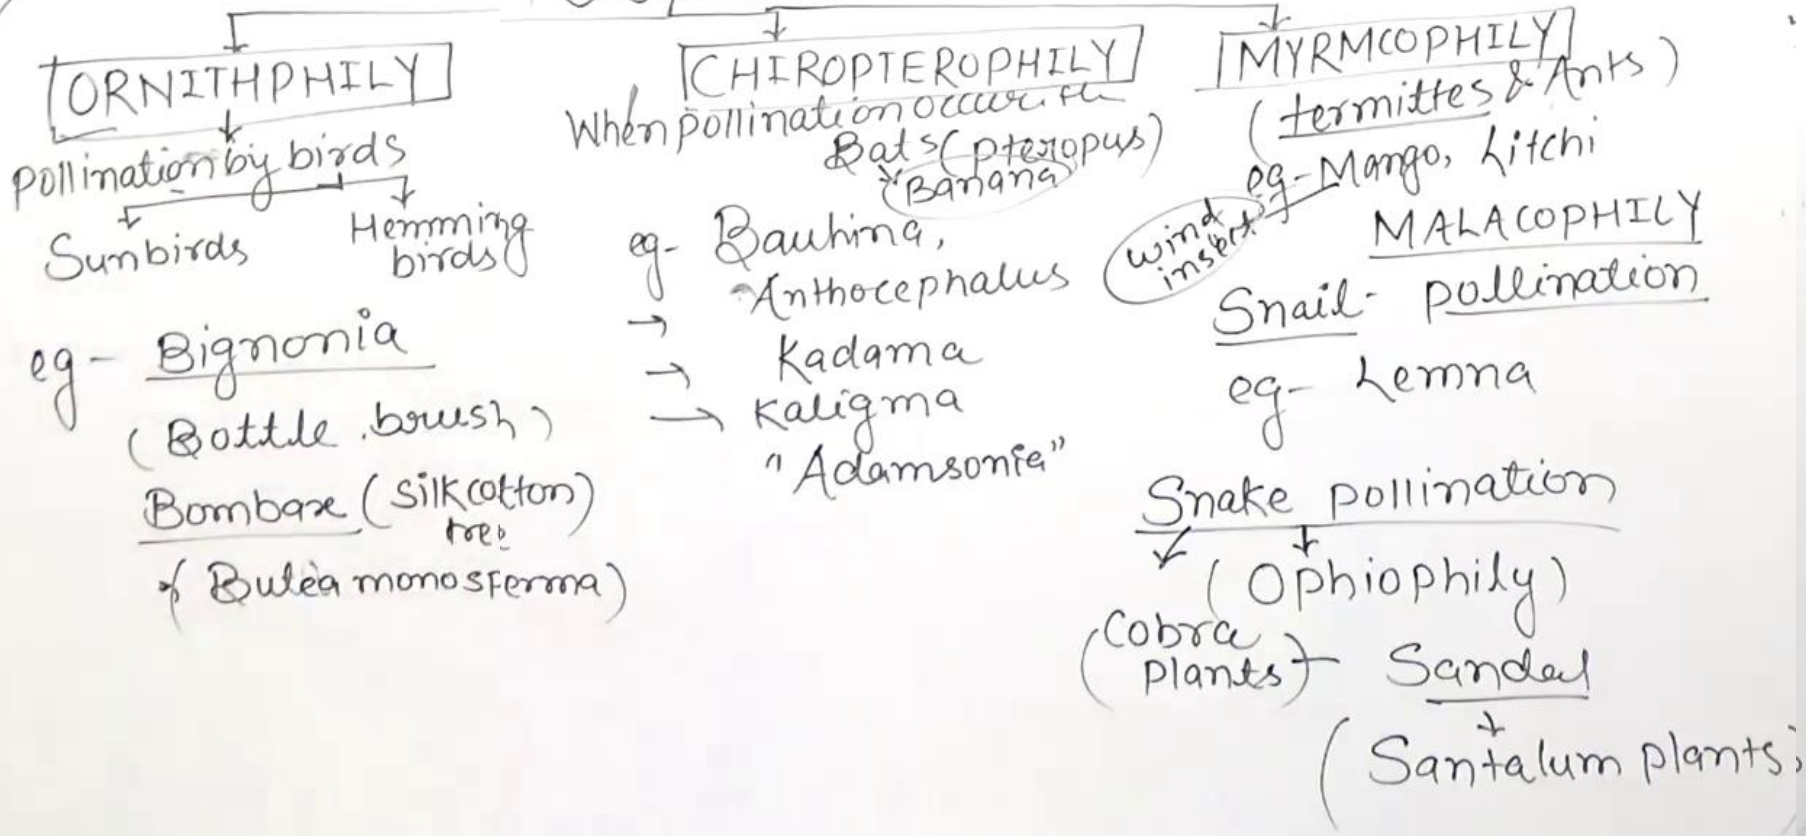 ORNITHPHILY
pollination by birds
Sunbirds
Hemming
birds
eg- Bignonia
(Bottle brush)
Bombax (Silkcotton)
tree
(Butea monosferma)
CHIROPTEROPHILY
When pollination occur
Bats (pteropus)
"Banana
eg- Bauhina,
Anthocephalus
→ Kadama
→ Kaligma
→ "Adamsonia"
MYRMCOPHILY
(termittes & Ants)
eg- Mango, Litchi
wind
insect
MALACOPHILY
Snail- pollination
eg- Lemna
Snake pollination
(Ophiophily)
(Cobra
plants) - Sandal
(Santalum plants)